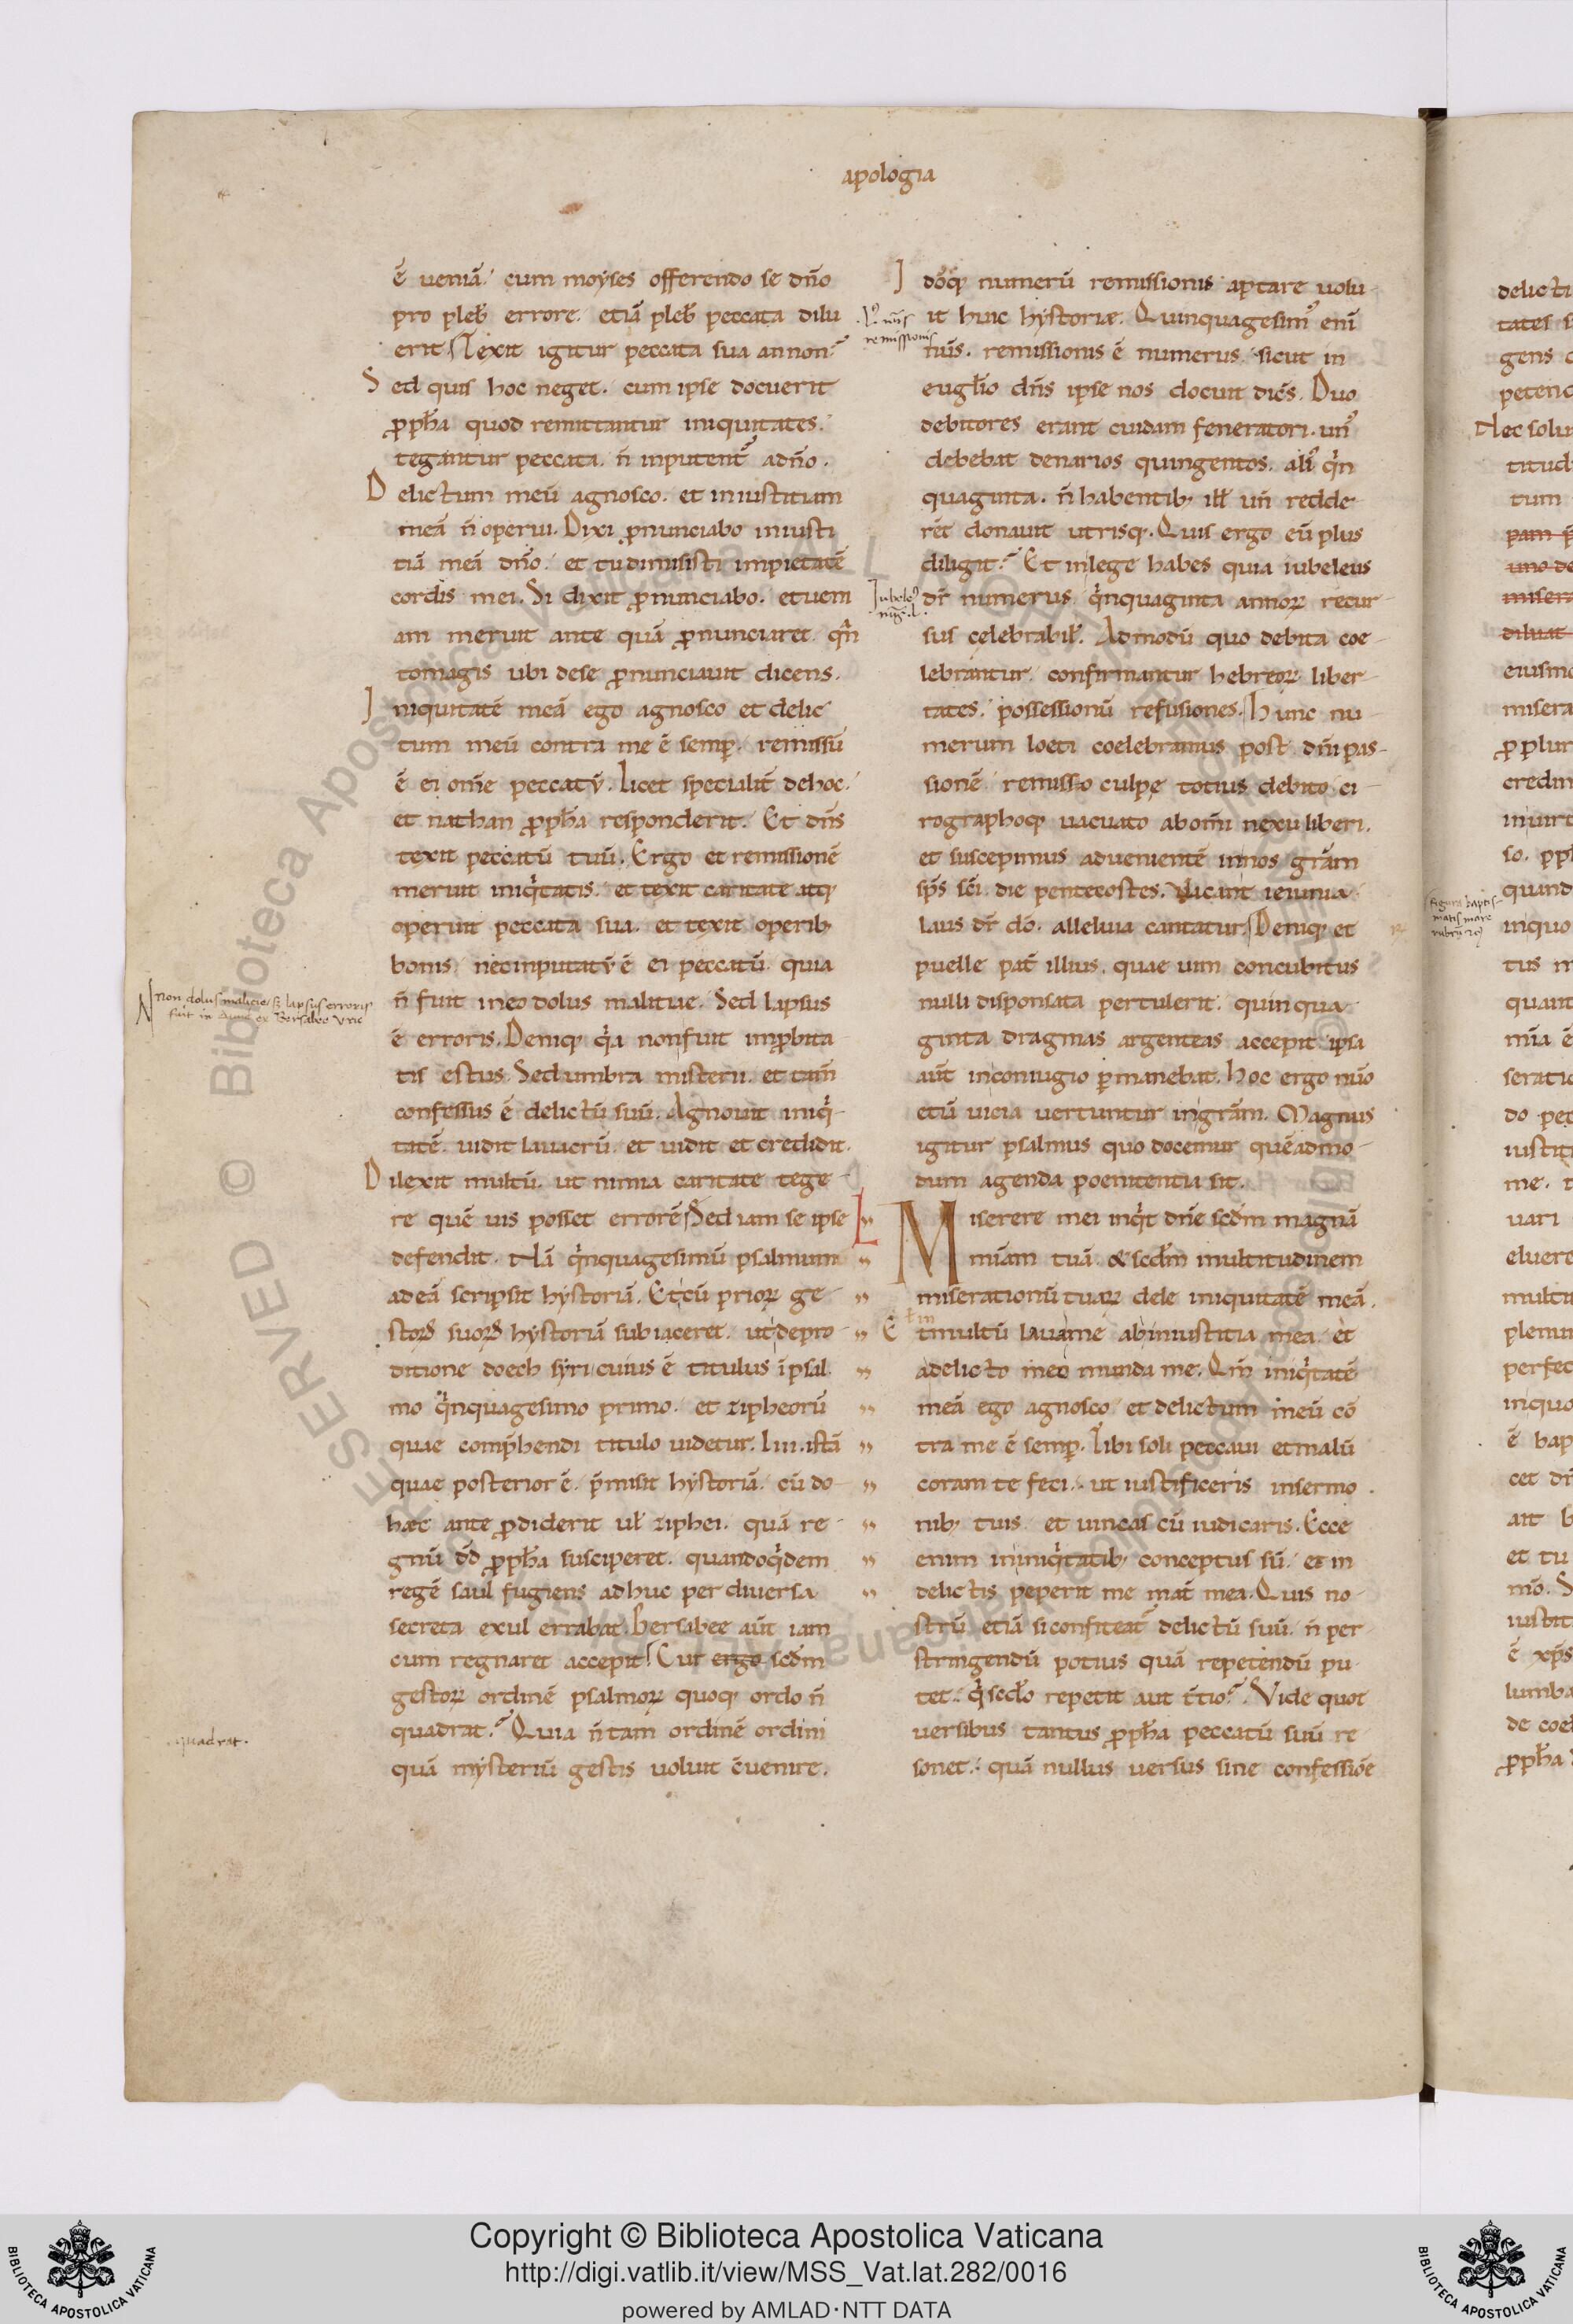 apologia
ē ueniā. cum moyses offerendo se dn̄o
pro pleb̄ errore. etiā pleb̄ peccata dilu
erit Texit igitur peccata sua an non?
Sed quis hoc neget. cum ipse docuerit
ꝓph̄a quod remittantur iniquitates.
tegantur peccata. n̄ inputent᷑ adn̄o.
Delictum meū agnosco. et iniustitiam
meā n̄ operui. Dixi ꝓnunciabo iniusti
tiā meā dn̄o. et tu dimisisti impietatē
cordis mei. Si dixit ꝓnunciabo. et ueni
am meruit ante quā ꝓnunciaret. qn̄
tomagis ubi dese ꝓnunciauit dicens.
Iniquitatē meā ego agnosco et delic
tum meū contra me ē semꝑ. remissū
ē ei om̄e peccatū. Licet specialit̄ dehoc.
et nathan ꝓph̄a responderit. Et dn̄s
texit peccatū tuū. Ergo et remissionē
meruit iniqͥtatis. et texit caritate atq;
operuit peccata sua. et texit operib;
bonis nec inputatū ē ei peccatū. quia
n̄ fuit in eo dolus malitiae. Sed lapsus
ē erroris. Deniq; qͥa non fuit inꝓbita
tis estus. Sed umbra misterii. et tam̄
confessus ē delictū suū. Agnouit iniqͥ
tatē. uidit lauacrū. et uidit et credidit.
Dilexit multū. ut nimia caritate tege
re quē uis posset errorē Sed iam se ipse
defendit. Nā qͥnquagesimū psalmum
ad eā scripsit hystoriā. Et cū prioꝝ ge
stoꝝ suoꝝ hystoriā subiaceret. ut depro
ditione doech syri cuius ē titulus ī psal
mo qͥnquagesimo primo. et zipheorū
quae comp̄hendi titulo uidetur. liii. istā
quae posterior ē. p̄misit hystoriā. cū do
haec ante ꝓdiderit ul̄ ziphei. quā re
gnū dd̄ ꝓph̄a susciperet. quandoqͥdem
regē saul fugiens adhuc per diuersa
secreta exul errabat. Bersabee aūt iam
cum regnaret accepit Cur ergo scd̄m
gestoꝝ ordinē psalmoꝝ quoq; ordo n̄
quadrat? Quia n̄ tam ordinē ordini
quā mysteriū gestis uoluit c̄uenire.
Non dolus malicie, s; lapsus erroris
fuit in
quadrat.
Idōq; numerū remissionis aptare uolu
it huic hystoriæ. Quinquagesimꝰ eni
nūs. remissionis ē numerus. sicut in
eugl̄io dn̄s ipse nos docuit dic̄s. Duo
debitores erant cuidam feneratori. unꝰ
debebat denarios quingentos. aliꝰ qͥn
quaginta. n̄ habentib; ill̄ un̄ redde
rēt donauit utrisq;. Quis ergo eū plus
diligit? Et in lege habes quia iubeleus
dr̄ numerus qͥnquaginta annoꝝ recur
sus celebrabil̄. Ad modū quo debita coe
lebrantur. confirmantur hebreoꝝ liber
tates. possessionū refusiones. Hunc nu
merum loeti coelebramus post dn̄i pas
sionē remisso culpe totius debito ci
rographoq; uacuato ab om̄i nexu liberi.
et suscepimus aduenientē in nos grām
sp̄s sc̄i. die pentecostes. Uacant ieiunia
laus dr̄ dō. alleluia cantatur. Deniq; et
puelle pat̄ illius. quae uim concubitus
nulli disponsata pertulerit. quinqua
ginta dragmas argenteas accepit ipsa
aūt in coniugio ꝑmanebat. Hoc ergo nūo
etū uicia uertuntur in grām. Magnus
igitur psalmus quo docemur quēadmo
dum agenda poenitentia sit.
Miserere mei inqͥt dn̄e scd̄m magnā
mīam tuā. & scd̄m multitudinem
miserationū tuaꝝ dele iniquitatē meā.
Et multū laua me ab iniustitia mea. et
a delicto meo munda me. Qm̄ iniqͥtatē
meā ego agnosco et delictum meū cō
tra me ē semꝑ. Tibi soli peccaui et malū
coram te feci. ut iustificeris in sermo
nib; tuis. et uincas cū iudicaris. Ecce
enim in iniqͥtatib; conceptus sū. et in
delictis peperit me mat̄ mea. Quis no
strū etiā si confiteat᷑ delictū suū. n̄ per
stringendū potius quā repetendū pu
tet. qͥ scd̄o repetit aut t̄tio? Vide quot
uersibus tantus ꝓph̄a peccatū suū re
sonet. quā nullus uersus sine confessiōe
remissionis
Iubeleꝰ
figura baptis
matis mare
delicti
tates
gens
petenc
Nec solu
titud
tum
eiusmo
misera
ꝓ plur
credim
quand
inquo
tus
quant
mīa ē
seratio
do pec
iustit
me.
uari
eluere
multu
plenu
perfec
inquo
ē bap
cet
ait
et tu
iustit
ē xp̄s
lumba
de coel
ꝓph̄a
© Biblioteca Apostolica Vaticana
Copyright © Biblioteca Apostolica Vaticana
http://digi.vatlib.it/view/MSS_Vat.lat.282/0016
powered by AMLAD·NTT DATA
BIBLIOTECA APOSTOLICA VATICANA
BIBLIOTECA APOSTOLICA VATICANA